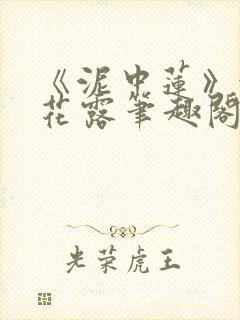 《泥中莲》
花露筆趣閣
光荣虎王